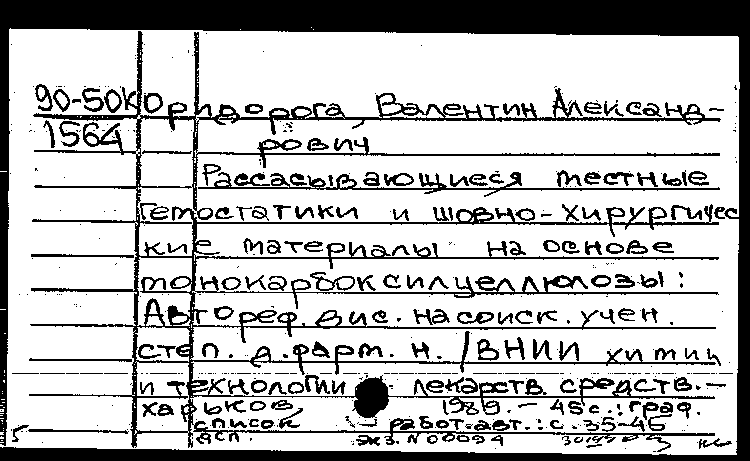 90-50К Юридорога, Валентин Александ-
1564 рович
Рассасывающиеся местные
гемостатики и шовно-хирургичес
кие материалы на основе
монокарбоксилцеллюлозы:
Автореф. дис. на соиск. учен.
степ. д. фарм. н. / ВНИИ химии
и технологии лекарств. средств.-
Харьков, 1989.- 45 с.: граф.
список работ авт.: с. 35-45
ДСП. Экз. N 00094
5